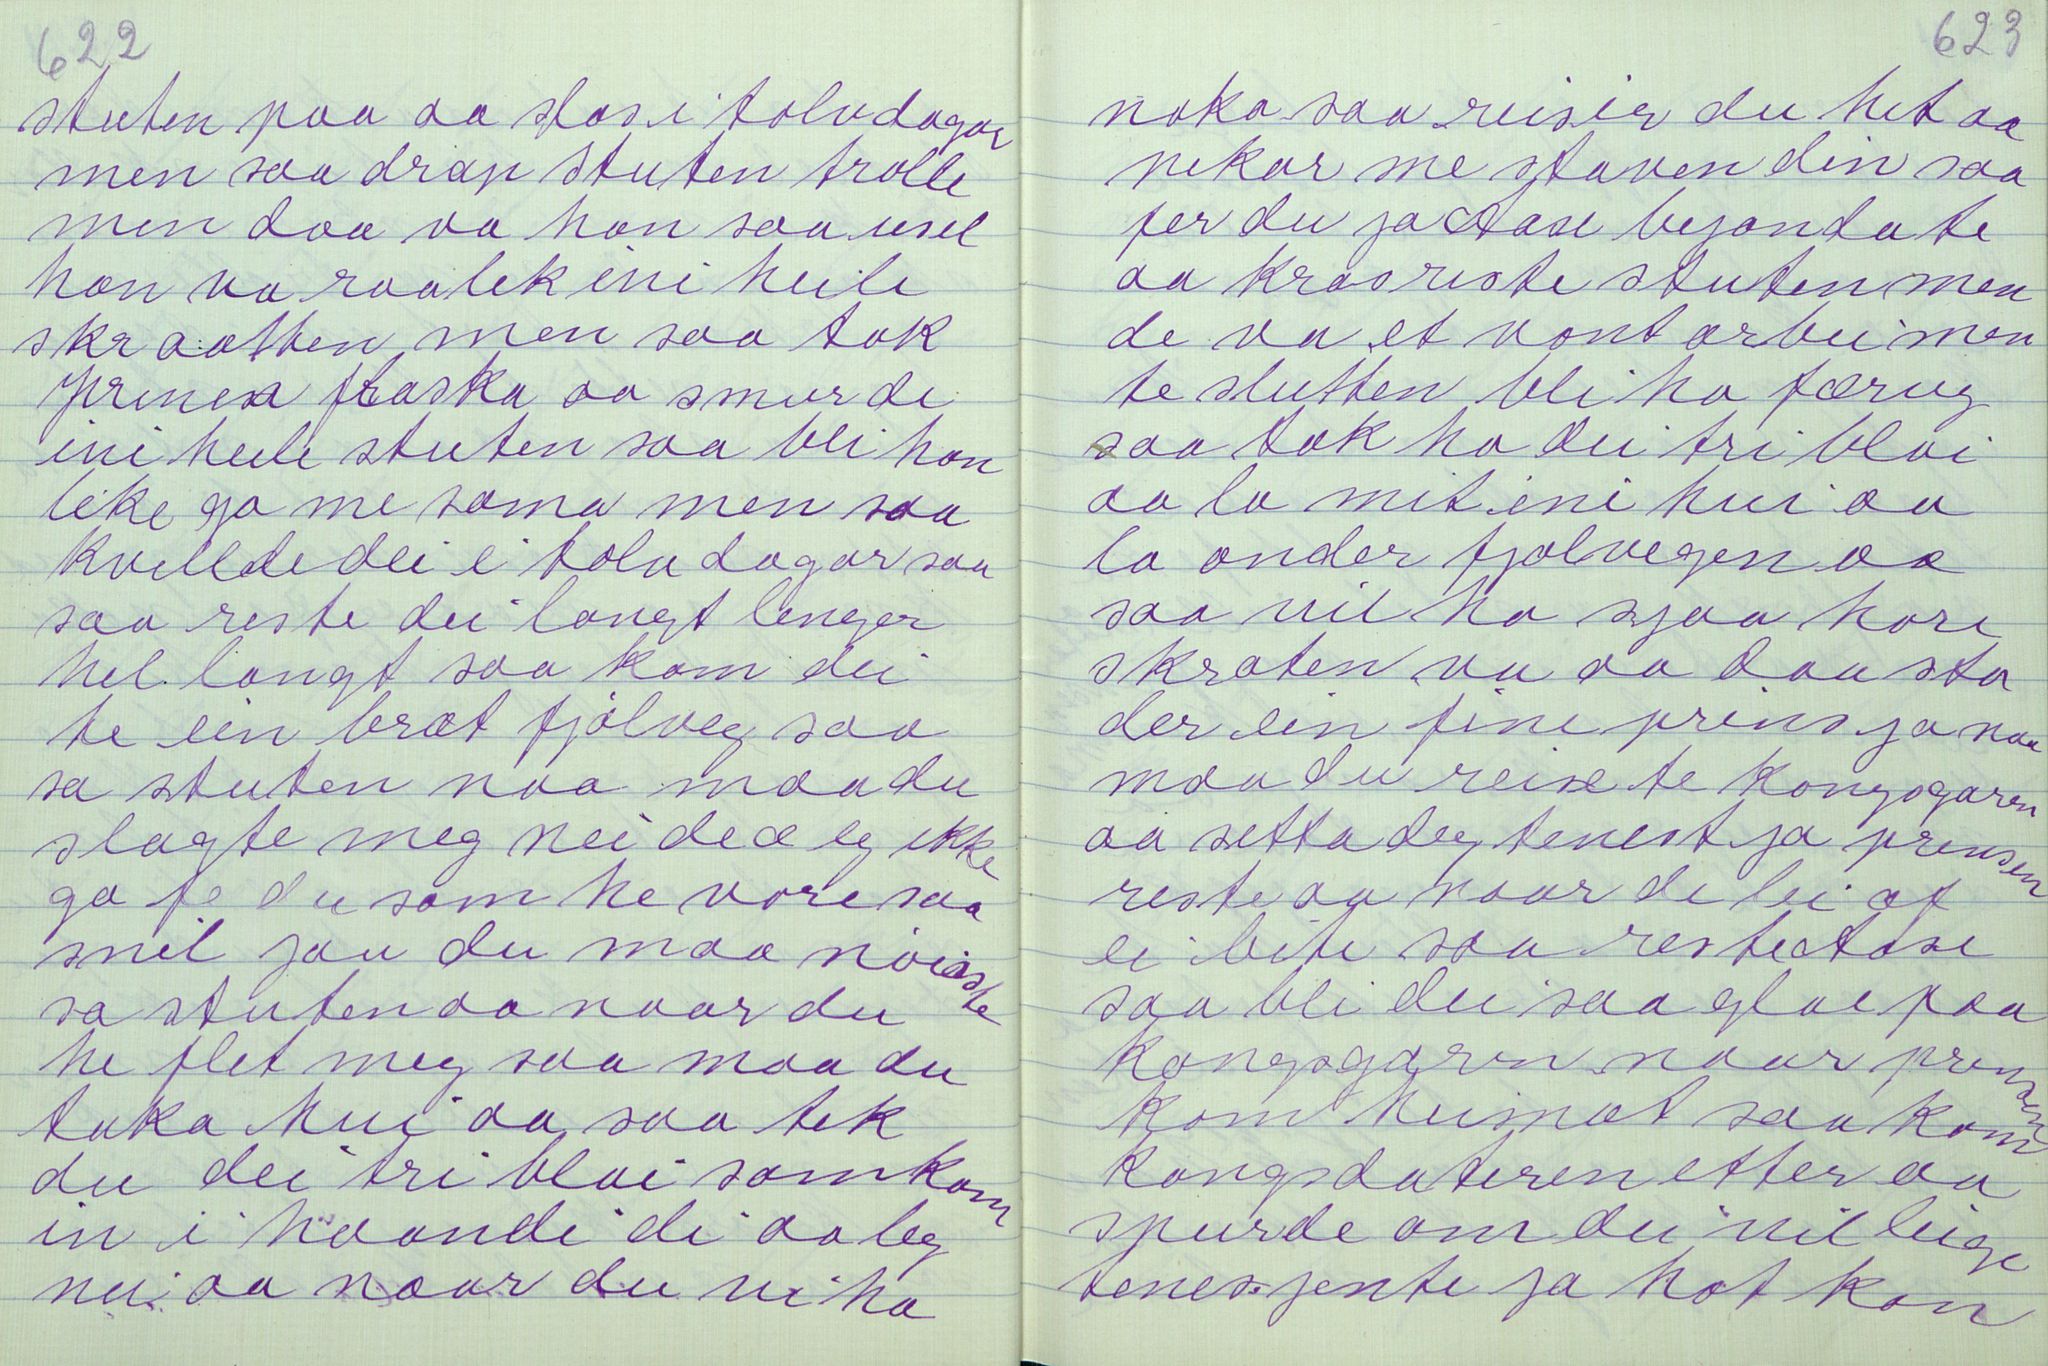 622
stuten paa aa slos i tolvdagar
men saa drap stuten trolle
men daa va han saa usel
han va raalek ini heile
skraatten men saa tok
prinsa flaska aa smurde
ini heile stuten saa bli han
like ga me sama men saa
kvillde dei i tolv dagar saa
saa reste dei langt lenger
hel langt saa kom dei
te ein bræt fjølveg saa
sa stuten naa maa du
slagte meg nei de æ eg ikke
ga fe du som he vore saa
snil jau du maa nøiaste
sa stuten aa naar du
he flet meg saa maa du
taka hui aa saa tek
du dei tri blai som kom
in i haandi di aa leg
nei aa naar du vi ha
623
noko saa reiser du hit aa
pekar me staven din saa
fer du ja Aase bejonda te
aa krasreste stuten men
de va et vont arbei men
te slutten bli ho færug
saa tok ho dei tri blai
aa la mit ini hui aa
la onder fjolvegen aa
saa vil ho sjaa hore
skroten va aa daa sto
der ein fine prins ja naa
maa du reise te kongsgaren
aa setta deg tenest ja prinsen
reste aa naar de lei af
ei bite saa reste Aase
saa bli dei saa glae paa
kongsgaren naar prinsen
kom heimat saa kom
kongsdateren etter aa
spurde om dei vil leige
tenesjente ja kot kan